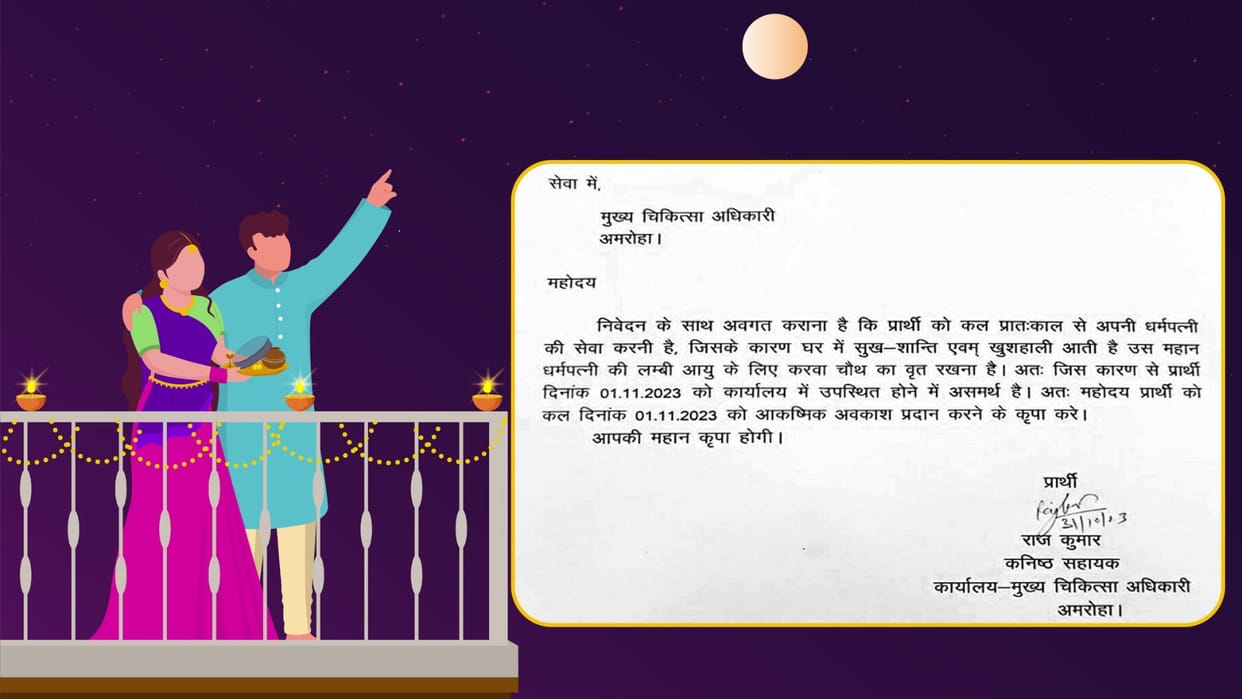 सेवा में,
मुख्य चिकित्सा अधिकारी
अमरोहा।
महोदय
निवेदन के साथ अवगत कराना है कि प्रार्थी को कल प्रातःकाल से अपनी धर्मपत्नी
की सेवा करनी है, जिसके कारण घर में सुख–शान्ति एवम् खुशहाली आती है उस महान
धर्मपत्नी की लम्बी आयु के लिए करवा चौथ का वृत रखना है। अतः जिस कारण से प्रार्थी
दिनांक 01.11.2023 को कार्यालय में उपस्थित होने में असमर्थ है। अतः महोदय प्रार्थी को
कल दिनांक 01.11.2023 को आकष्मिक अवकाश प्रदान करने के कृपा करे।
आपकी महान कृपा होगी।
प्रार्थी
31/10/23
राज कुमार
कनिष्ठ सहायक
कार्यालय–मुख्य चिकित्सा अधिकारी
अमरोहा।